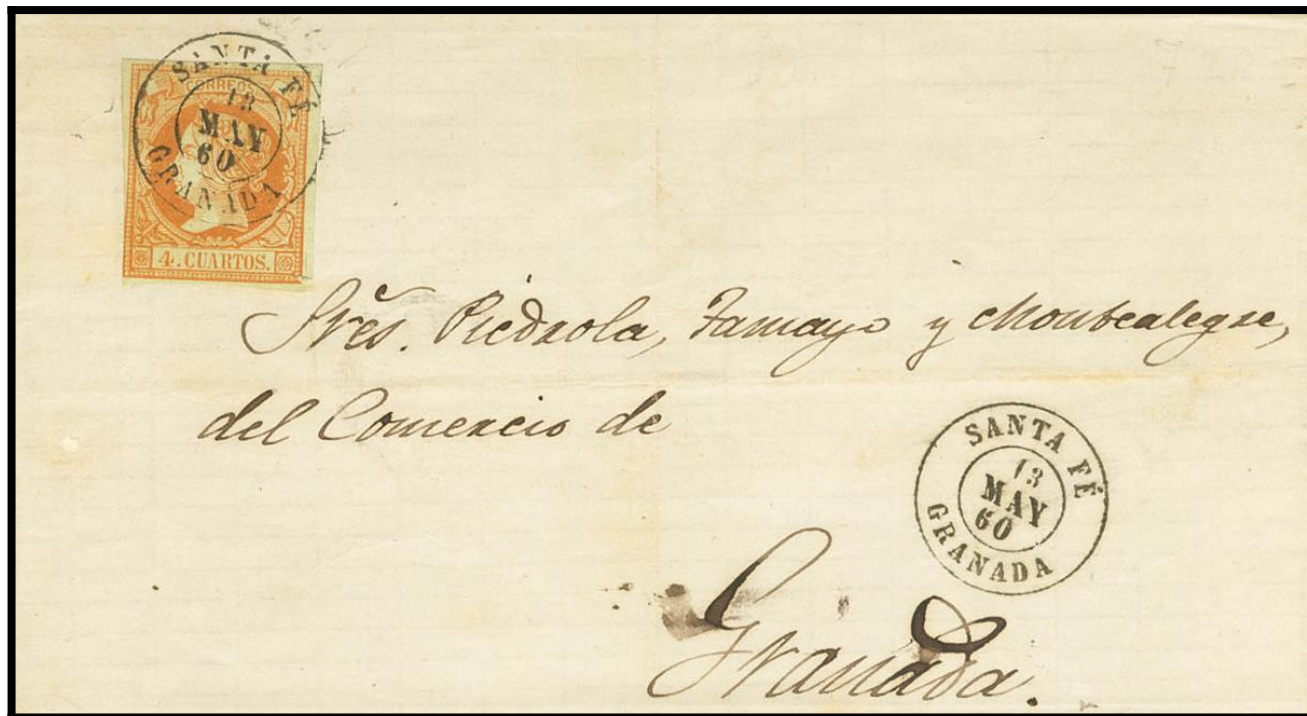 SANTA FÉ
13
MAY
60
GRANADA
CORREOS
4. CUARTOS.
Sres. Piedrola, Tamayo y Montealegre,
del Comercio de
SANTA FÉ
13
MAY
60
GRANADA
Granada.